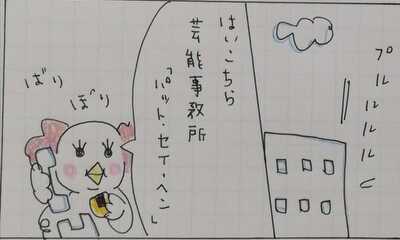 プルルルルル
はいこちら
芸能事務所
「パット・セイ・ヘン」
ばり
ぼり